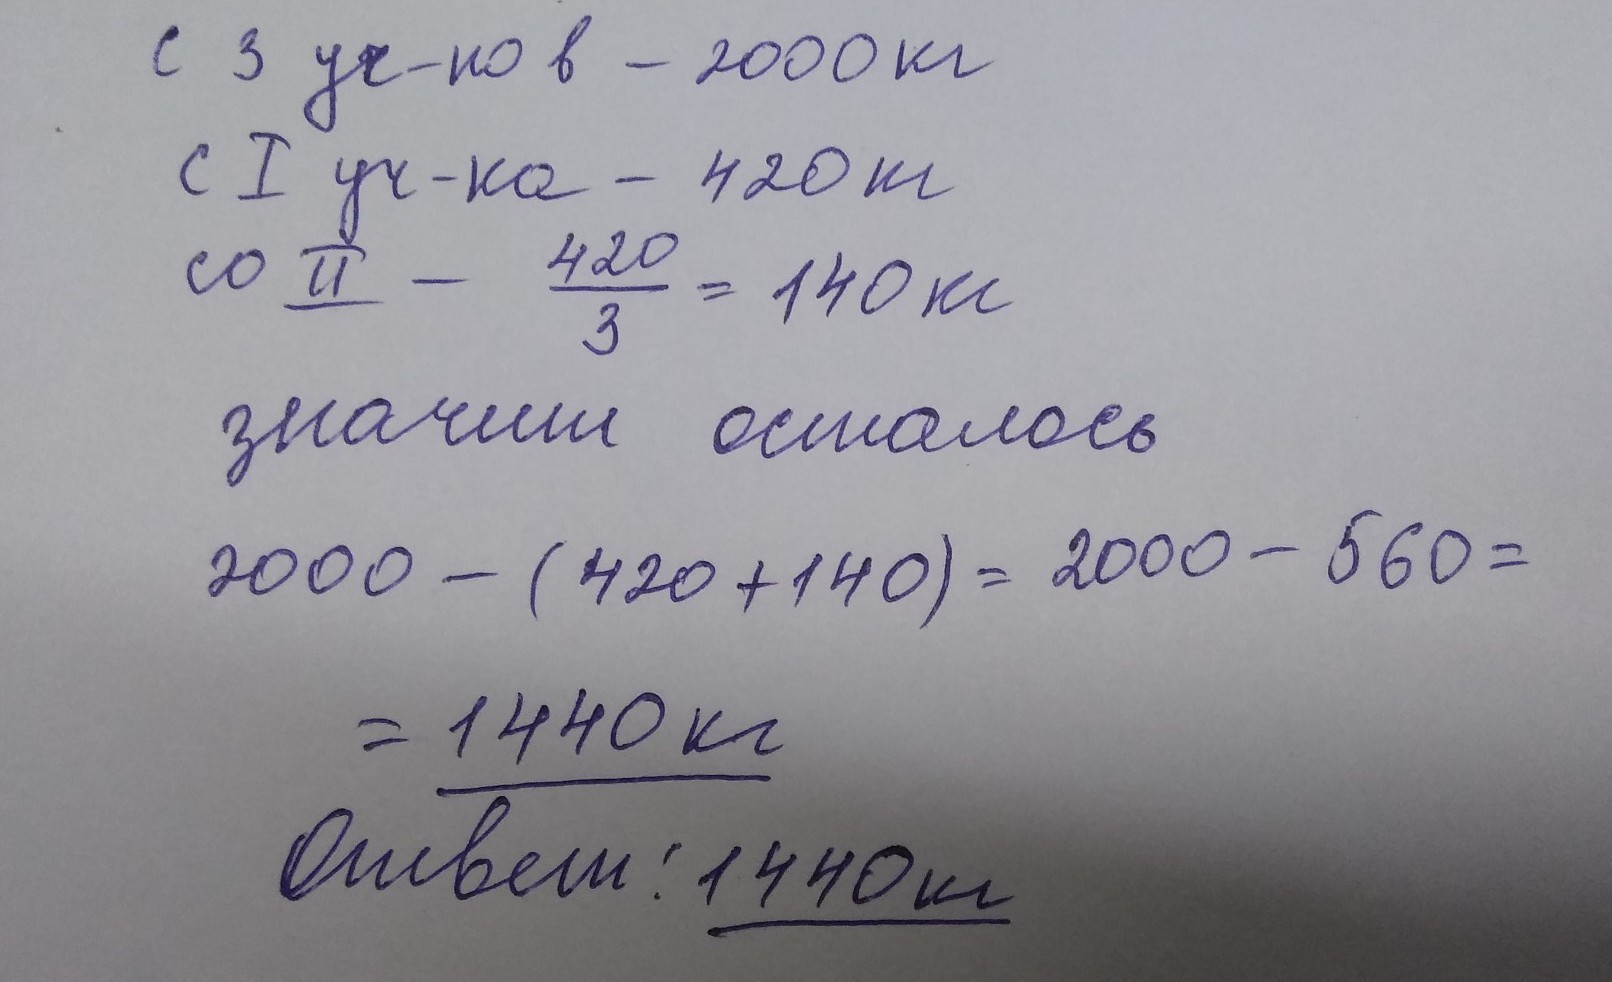 с 3 уч-ков - 2000кг
с I уч-ка - 420кг
со II - 420/3 = 140кг
значит осталось
2000 - (420+140) = 2000 - 560 =
= 1440кг
Ответ: 1440кг